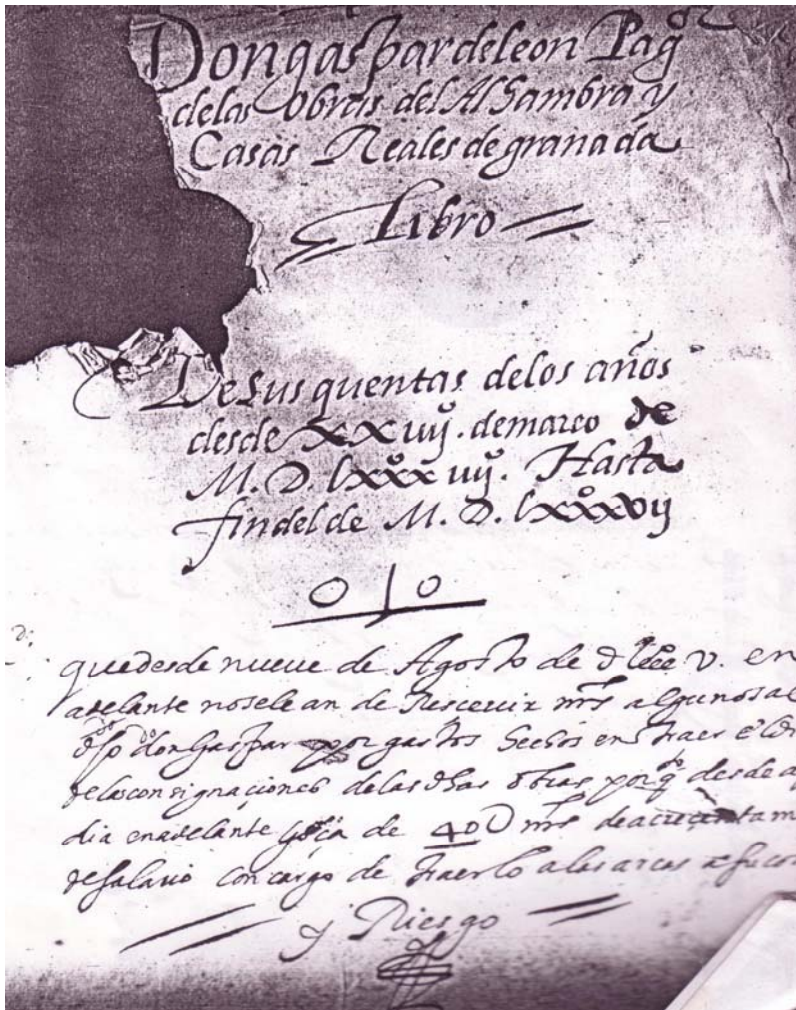 Don gaspar de leon Pagº
de las Obras del Alhambra y
Casas Reales de granada
Libro
De sus quentas de los años
desde XXuijº. de março de
M. D. lxxxuijº. Hasta
fin del de M. D. lxxxvij
que desde nueve de Agosto de D lxxx V. en
adelante no se le an de Rescevir mrs algunos al
dho don Gaspar por gastos hechos en traer el di
de las consignaciones de las dhas obras porq desde a
dia en adelante goça de 40U mrs de
de salario con cargo de traerlo a las arcas a su cos
y Riesgo